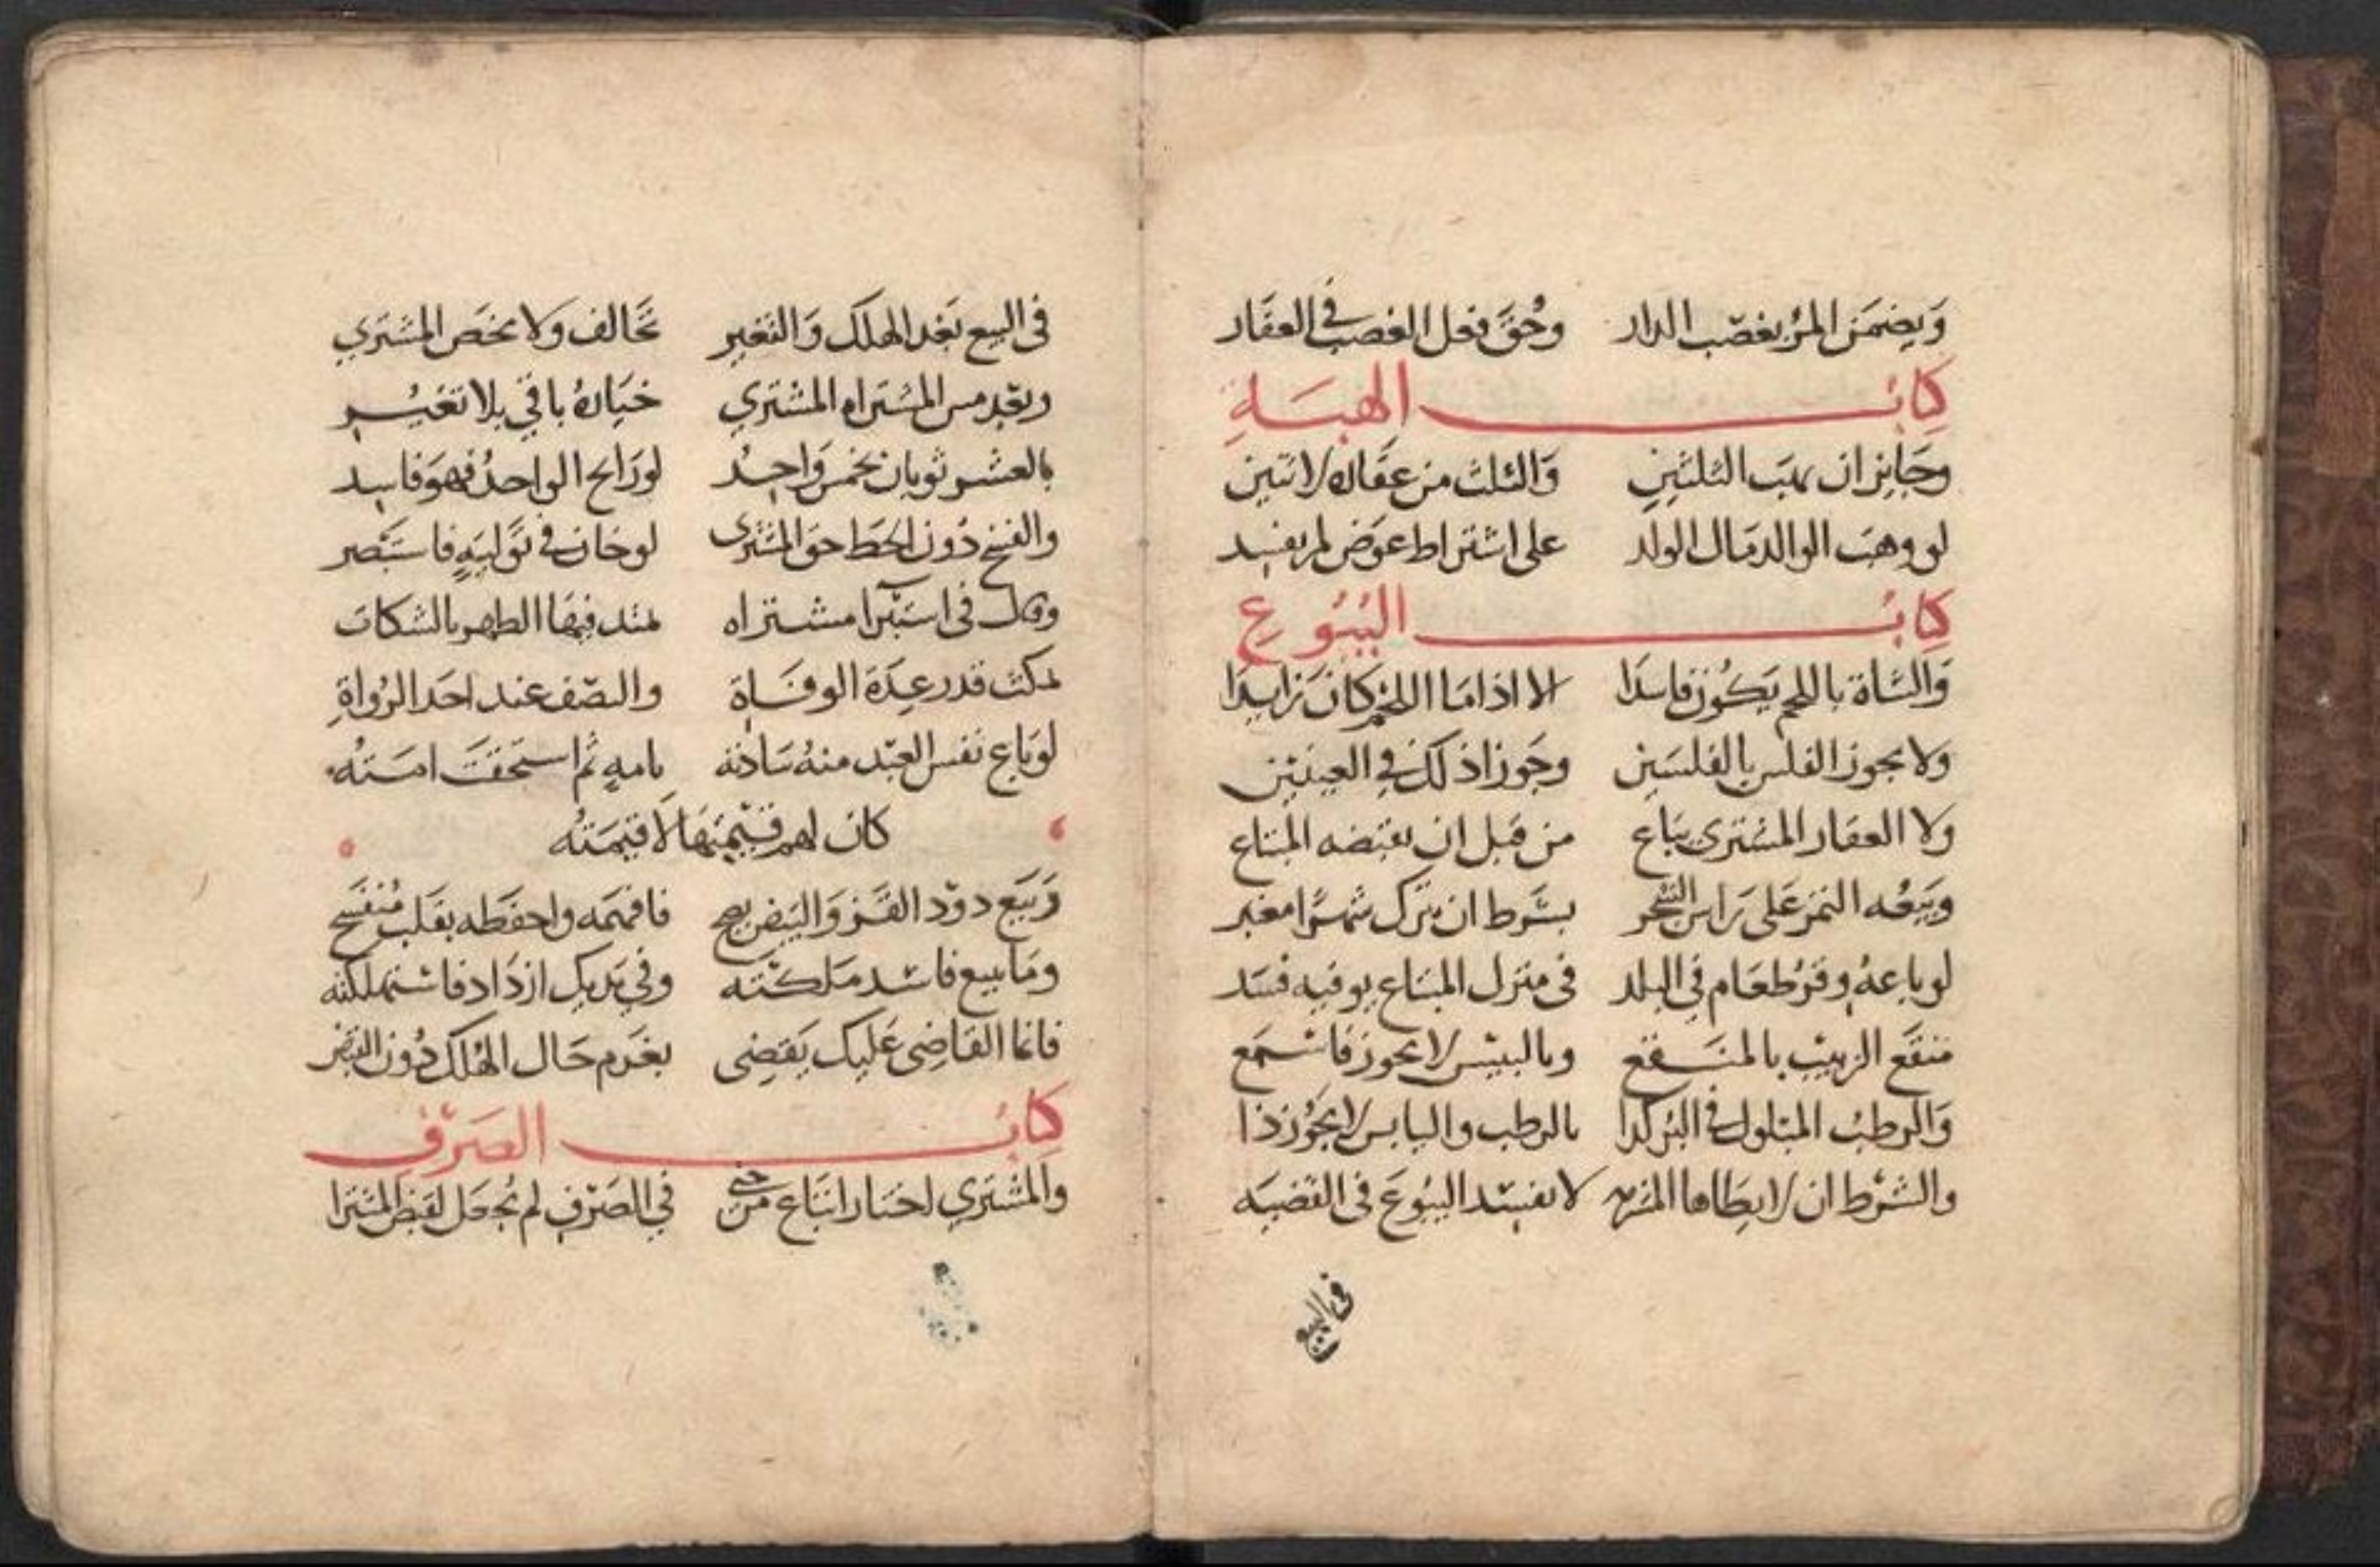 وَيضمَن المرُ بغصْب الدار وحُقَّ فعل الغصب في العقَار
كتابُ الهبَةِ
وجَايز ان يهَب الثلثَينِ وَالثلث من عقَاره لاثنين
لو وهبَ الوالد مَال الولد على اشتراط عوَض لم يفسد
كتابُ البُيُوعِ
وَالشاة باللحم يَكُون فاسدَا الا اذا مَا اللحْم كانَ زايدَا
ولا يجوز الفلس بالفلسَين وجَوزا ذلك في العينَين
ولا العقار المشترى يبَاع من قبل ان يقبضه المبتاع
وبَيعُه الثمر عَلى رَاس الشجر بشَرط ان يترك شهرًا
لو باعهُ وقرَ طعَام في البلد في منزل المبتاع يوفيه فسَد
منقَع الزبيب بالمنَقع وبالبيس لا يجوز فاسمَع
وَالرطبُ المبلول في البُر كذا بالرطب واليابس لا يجُوز ذا
والشرْط ان لا يطَاها لا يفسد البيُوعَ في القضيَه
في البيع
في البيع بَعْد الهلك وَالتغير تحَالف ولا يخصَ المشتَري
وبَعْد مس المشتراه المشتري خيَارهُ باقي بلا تغيُير
بالعشر ثوبان بخمس وَاحِدُ لو رَابح الواحدُ فهوَ فاسِد
والفسخ دُون الحَط حق المشترى لو خَان في تَوليَةٍ فاستَبْصر
في استبْرا مشتراه فيهَا الطهر
قدر عِدَة الوفَاة والنصْف عند احَد الرُواةِ
لو بَاع نفس العَبْد منهُ سَادته بامه ثُم استحقَت امَتُه
كان لهم قيْمتهَا لا قيمَتُه
وَبَيَع دوْد القَز وَالبَيض يصح فافهمَه واحفَظه بقَلبٍ مُنفَسح
ومَا ببيع فاسد مَلكْتَه وفي يَديك ازدَاد فاستهلكته
فانما القَاضِي عَليك يَقضِي بغَرم حَال الهُلك دُون القبض
كتابُ الصَرْفِ
والمشتَري اختار اتبَاع مَن جنى في الصَرْفِ لم يُجعَل لقبض المشترَا